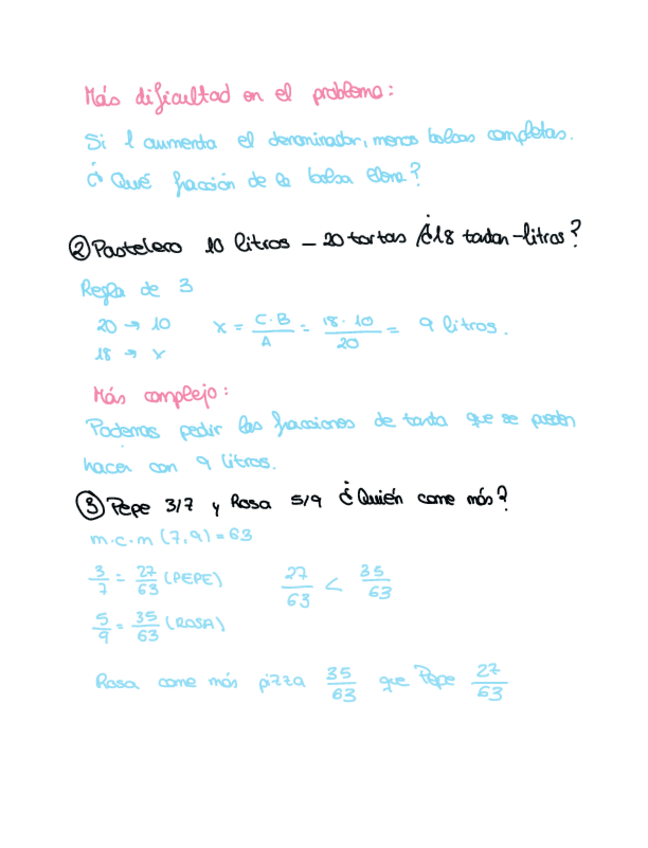 Más dificultad en el problema:
Si l aumenta el denominador, menos bolsas completas.
¿Qué fracción de la bolsa llena?
② Pastelero 10 litros - 20 tortas ¿18 tartas-litros?
Regla de 3
20 → 10 x = C·B / A = 18·10 / 20 = 9 litros.
18 → x
Más complejo:
Podemos pedir las fracciones de tarta que se pueden
hacer con 9 litros.
③ Pepe 3/7 y Rosa 5/9 ¿Quién come más?
m.c.m (7,9) = 63
3/7 = 27/63 (PEPE) 27/63 < 35/63
5/9 = 35/63 (ROSA)
Rosa come más pizza 35/63 que Pepe 27/63